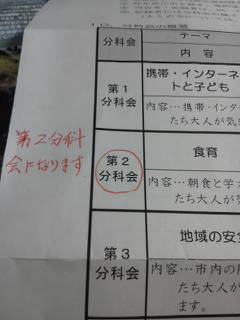 10. 分科会の概要
分科会
テーマ
内容
第1
分科会
携帯・インターネ
トと子ども
内容…携帯・インター
たち大人が気
第2分科
会になります
第2
分科会
食育
内容…朝食と学
たち大人が気
第3
分科会
地域の安全
内容…市内の
たち大人が
ます。